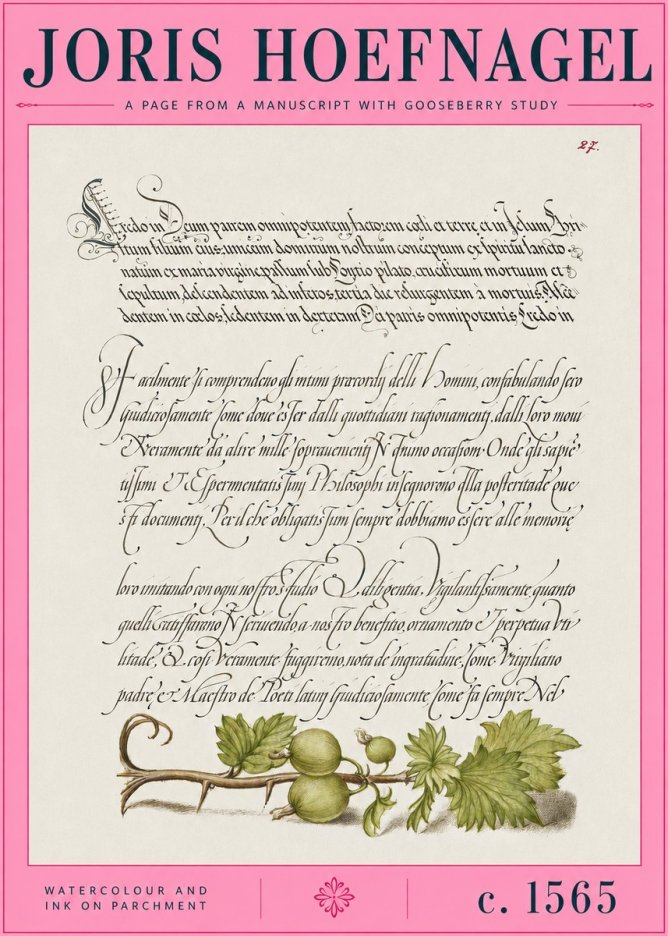 JORIS HOEFNAGEL
A PAGE FROM A MANUSCRIPT WITH GOOSEBERRY STUDY
27.
Credo in Deum patrem omnipotentem factorem cœli et terre et in Jesum Chri-
stum filium eius unicum dominum nostrum conceptum ex spiritu sancto
natum ex maria virgine, passum sub Pontio pilato, crucifixum mortuum et
sepultum, descendentem ad inferos, tertia die resurgentem à mortuis, Asce
dentem in cœlos, sedentem in dexteram Dei patris omnipotentis Credo in
Facilmente si comprendeno gli intimi precordij delli Homini, confabulando sero
giudiciosamente Come doue esser dalli quottidiani ragionamenti, dalli loro moui
& veramente da altre mille sopravenienti Onde gli sapiē
tissimi & Espermentatissimj Philosophi insegnorono alla posteritade que
sti documenti, Per il che obligatissum sempre dobbiamo essere alle memorie
loro imitando con ogni nostro studio & diligentia, Vigilantissamente quanto
quelli scriuendo, a nostro benefitio, ornamento & perpetua Vti
litade, & cosi veramente fuggiremo, nota de ingratitudine, Come Virgiliano
padre, & Maestro de Poeti latinj Giudiciosamente Come fa sempre Nel
WATERCOLOUR AND
INK ON PARCHMENT
c. 1565